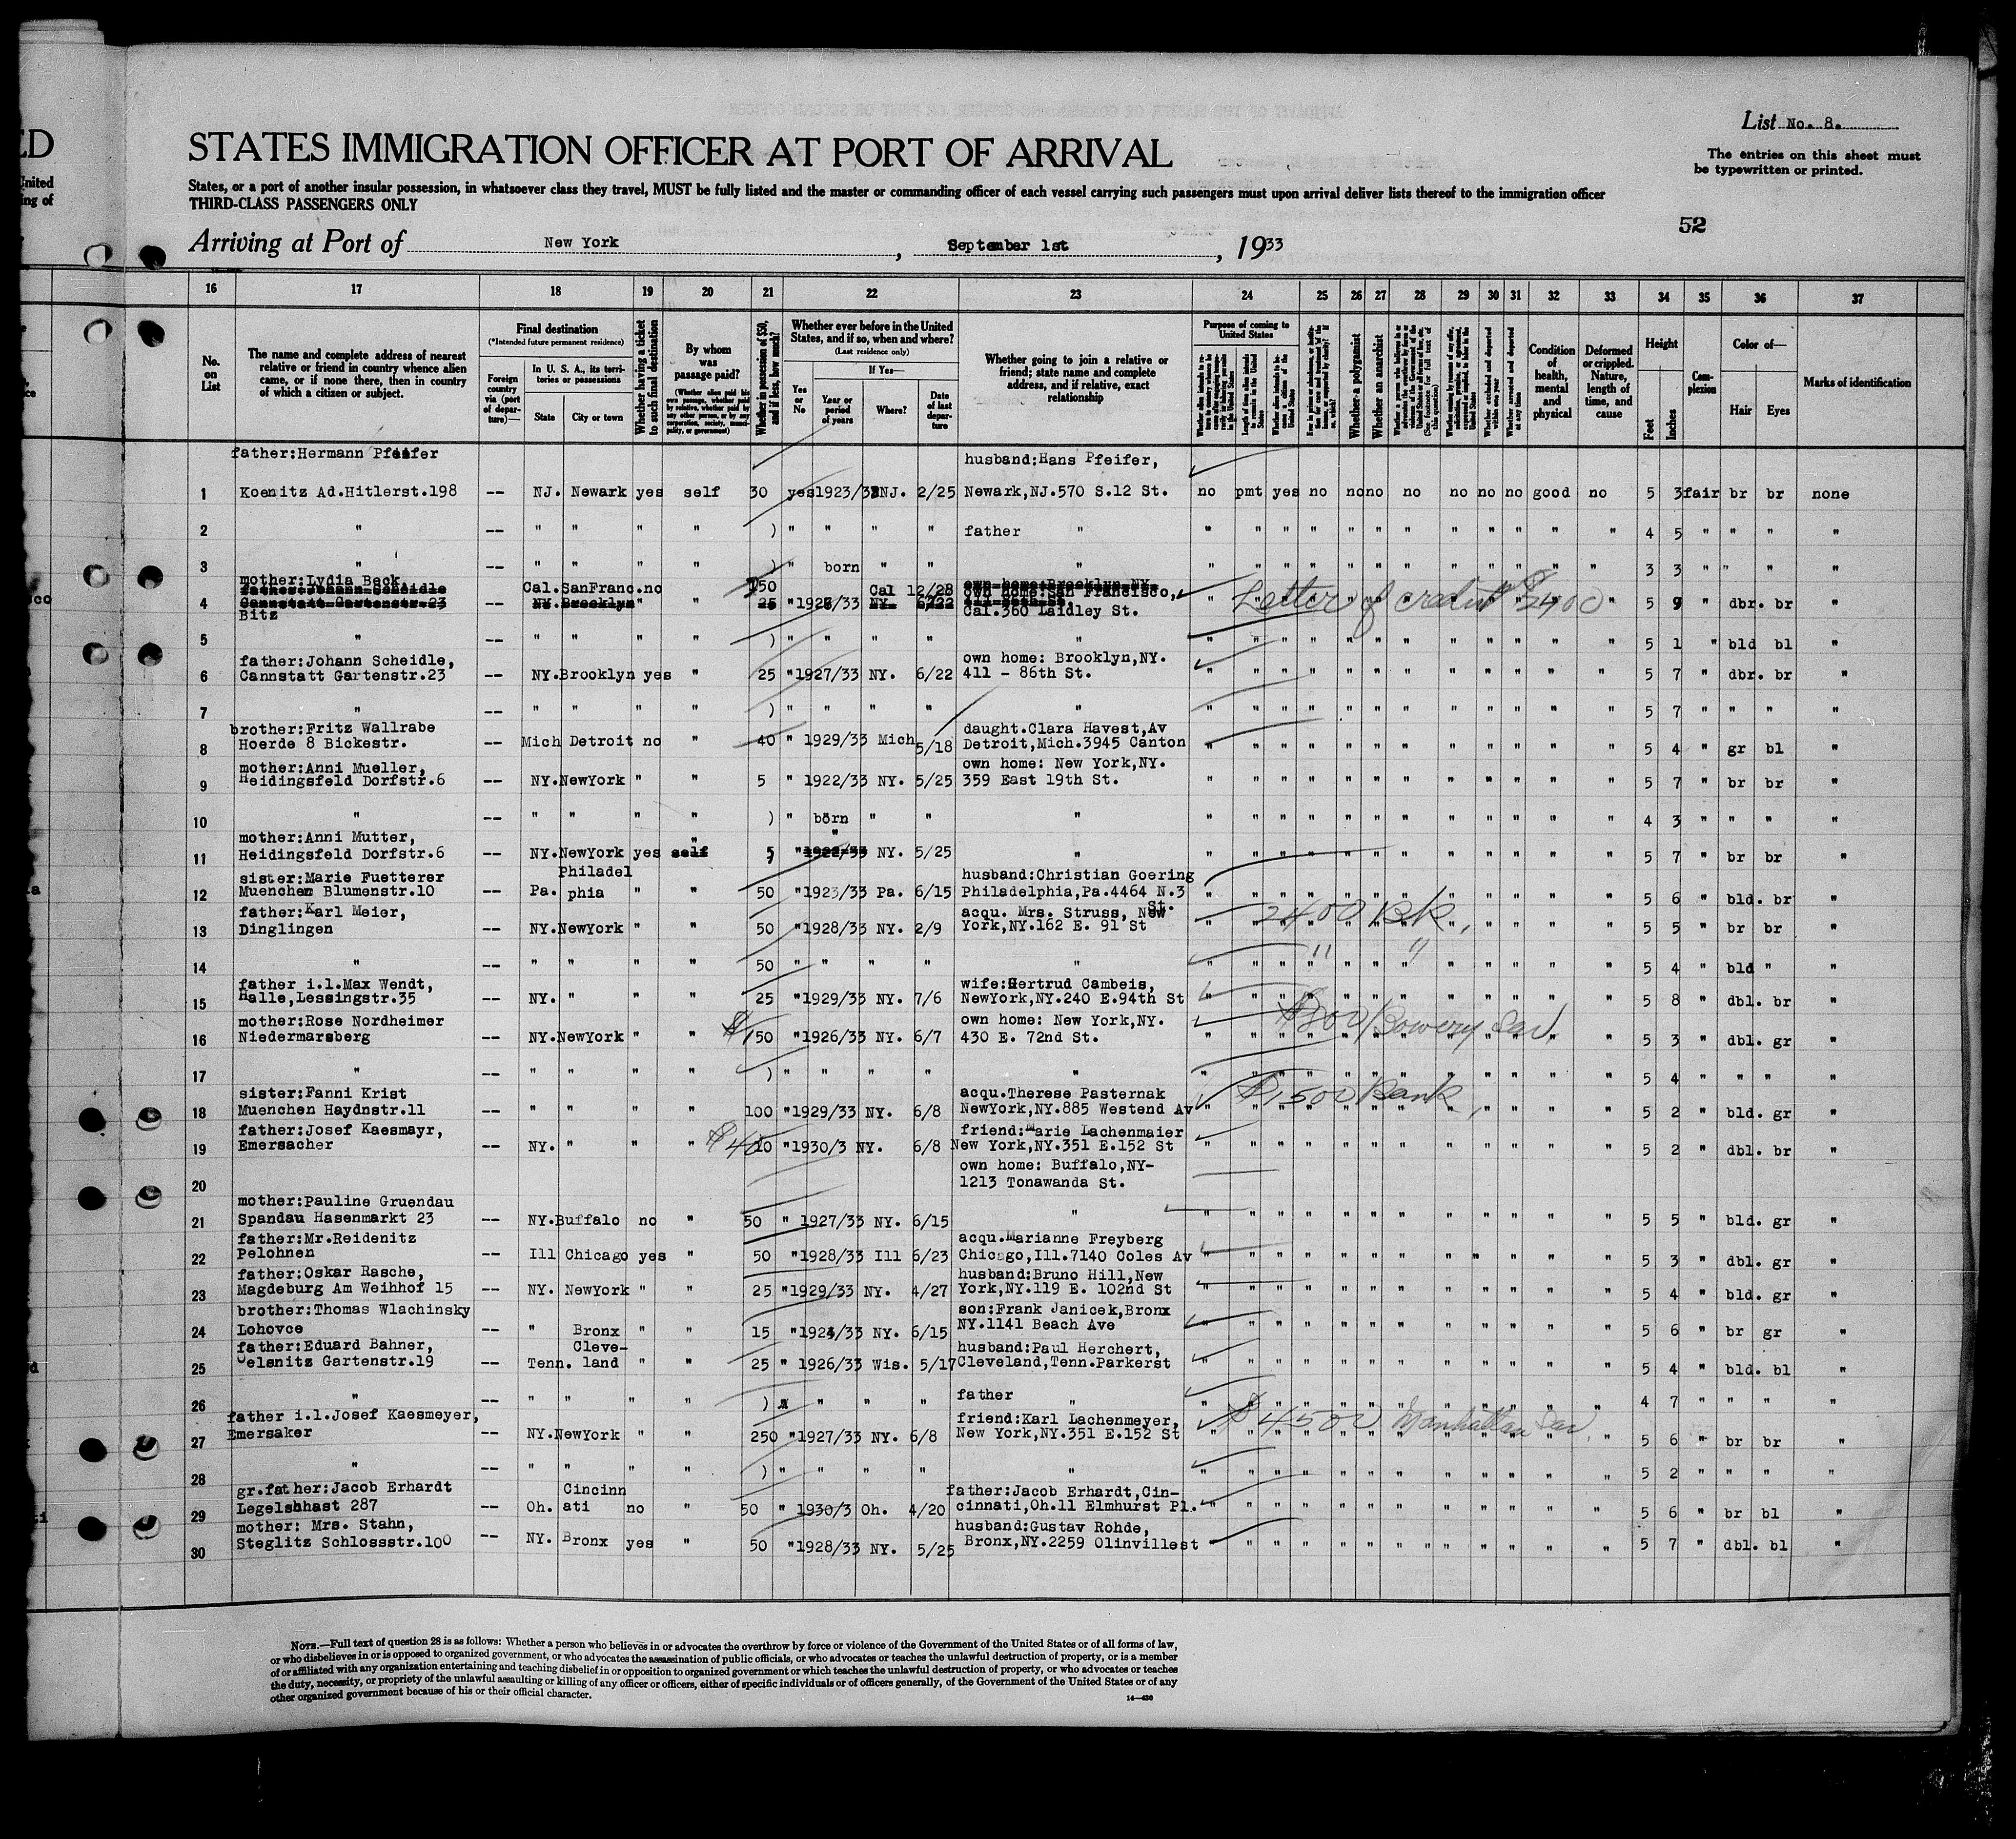 ED
United
ing of
List No. 8.
STATES IMMIGRATION OFFICER AT PORT OF ARRIVAL
The entries on this sheet must
be typewritten or printed.
States, or a port of another insular possession, in whatsoever class they travel, MUST be fully listed and the master or commanding officer of each vessel carrying such passengers must upon arrival deliver lists thereof to the immigration officer
THIRD-CLASS PASSENGERS ONLY
52
Arriving at Port of New York, September 1st, 1933
16 17 18 19 20 21 22 23 24 25 26 27 28 29 30 31 32 33 34 35 36 37
No. on List
The name and complete address of nearest relative or friend in country whence alien came, or if none there, then in country of which a citizen or subject.
Final destination
(*Intended future permanent residence)
Foreign country via (port of departure)—
In U. S. A., its territories or possessions
State City or town
Whether having a ticket to such final destination
By whom was passage paid?
(Whether alien paid his own passage, whether paid by relative, whether paid by any other person, or by any corporation, society, municipality, or government)
Whether in possession of $50, and if less, how much?
Whether ever before in the United States, and if so, when and where?
(Last residence only)
Yes or No
If Yes—
Year or period of years Where? Date of last departure
Whether going to join a relative or friend; state name and complete address, and if relative, exact relationship
Purpose of coming to United States
Whether a polygamist
Whether an anarchist
Whether arrested and deported at any time
Condition of health, mental and physical
Deformed or crippled. Nature, length of time, and cause
Height
Feet Inches
Complexion
Color of—
Hair Eyes
Marks of identification
father:Hermann Pfeifer husband:Hans Pfeifer,
1 Koenitz Ad.Hitlerst.198 -- NJ. Newark yes self 30 yes 1923/33 NJ. 2/25 Newark,NJ.570 S.12 St. no pmt yes no no no no no no no good no 5 3 fair br br none
2 " -- " " " " ) " " " " father " " " " " " " " " " " " " 4 5 " " " "
3 " -- " " " " ) " born " " " " " " " " " " " " " " 3 3 " " " "
mother:Lydia Beck
father:Johann Scheidle Cal.SanFranc.no 150 Cal 12/28 own home:San Francisco,
4 Cannstatt Gartenstr.23 NY.Brooklyn " " 25 "1926/33 NY. 6/22 Cal.360 Laidley St. Letter of credit $2400 5 9 " dbr. br "
Bitz
5 " -- " " " " ) " " " " " " " " " " " " " " " " " 5 1 " bld bl "
father:Johann Scheidle, own home: Brooklyn,NY.
6 Cannstatt Gartenstr.23 -- NY.Brooklyn yes " 25 "1927/33 NY. 6/22 411 - 86th St. " " " " " " " " " " " " 5 7 " dbr. br "
7 " -- " " " " ) " " " " " " " " " " " " " " " " " 5 7 " " " "
brother:Fritz Wallrabe daught.Clara Havest,Av
8 Hoerde 8 Bickestr. -- Mich Detroit no " 40 " 1929/33 Mich 5/18 Detroit,Mich.3945 Canton " " " " " " " " " " " " 5 4 " gr bl "
mother:Anni Mueller, own home: New York,NY.
9 Heidingsfeld Dorfstr.6 -- NY.NewYork " " 5 " 1922/33 NY. 5/25 359 East 19th St. " " " " " " " " " " " " 5 7 " br br "
10 " -- " " " " ) " born " " " " " " " " " " " " " " " 4 3 " " " "
mother:Anni Mutter,
11 Heidingsfeld Dorfstr.6 -- NY.NewYork yes self 5 "1922/33 NY. 5/25 " " " " " " " " " " " " " 5 7 " br br "
sister:Marie Fuetterer Philadel husband:Christian Goering
12 Muenchen Blumenstr.10 -- Pa. phia " " 50 "1923/33 Pa. 6/15 Philadelphia,Pa.4464 N.3 St. " " " " " " " " " " " " 5 6 " bld. br "
father:Karl Meier, acqu. Mrs. Struss, New 2400 Bk,
13 Dinglingen -- NY.NewYork " " 50 "1928/33 NY. 2/9 York,NY.162 E. 91 St " " " " " " " " " " " " 5 5 " br br "
14 " -- " " " " 50 " " " " " " " " " " " " " " " " " 5 4 " bld " "
father i.l.Max Wendt, wife:Gertrud Cambeis,
15 Halle,Lessingstr.35 -- NY. " " " 25 "1929/33 NY. 7/6 NewYork,NY.240 E.94th St " " " " " " " " " " " " 5 8 " dbl. br "
mother:Rose Nordheimer own home: New York,NY. $800 Bowery Sav.
16 Niedermarsberg -- NY.NewYork " " $150 "1926/33 NY. 6/7 430 E. 72nd St. " " " " " " " " " " " " 5 3 " dbl. gr "
17 " -- " " " " ) " " " " " " " " " " " " " " " " " 5 4 " " " "
sister:Fanni Krist acqu.Therese Pasternak $1500 Bank,
18 Muenchen Haydnstr.11 -- " " " " 100 "1929/33 NY. 6/8 NewYork,NY.885 Westend Av " " " " " " " " " " " " 5 2 " bld. gr "
father:Josef Kaesmayr, friend:Marie Lachenmaier
19 Emersacher -- NY. " " " $40 "1930/3 NY. 6/8 New York,NY.351 E.152 St " " " " " " " " " " " " 5 2 " dbl. br "
own home: Buffalo,NY-
20 1213 Tonawanda St.
mother:Pauline Gruendau
21 Spandau Hasenmarkt 23 -- NY.Buffalo no " 50 " 1927/33 NY. 6/15 " " " " " " " " " " " " " 5 5 " bld. gr "
father:Mr.Reidenitz acqu.Marianne Freyberg
22 Pelohnen -- Ill Chicago yes " 50 "1928/33 Ill 6/23 Chicago,Ill.7140 Coles Av " " " " " " " " " " " " 5 3 " dbl. gr "
father:Oskar Rasche, husband:Bruno Hill,New
23 Magdeburg Am Weihhof 15 -- NY. NewYork " " 25 "1929/33 NY. 4/27 York,NY.119 E. 102nd St " " " " " " " " " " " " 5 4 " bld. gr "
brother:Thomas Wlachinsky son:Frank Janicek,Bronx
24 Lohovce -- " Bronx " " 15 "1924/33 NY. 6/15 NY.1141 Beach Ave " " " " " " " " " " " " 5 6 " br gr "
father:Eduard Bahner, Cleve- husband:Paul Herchert,
25 Oelsnitz Gartenstr.19 -- Tenn. land " " 25 " 1926/33 Wis. 5/17 Cleveland,Tenn.Parkerst " " " " " " " " " " " " 5 4 " bld. bl "
26 " -- " " " " ) " " " " father " " " " " " " " " " " " " 4 7 " " " "
father i.l.Josef Kaesmeyer, friend:Karl Lachenmeyer, $4500 Manhattan Sav.
27 Emersaker -- NY.NewYork " " 250 "1927/33 NY. 6/8 New York,NY.351 E.152 St " " " " " " " " " " " " 5 6 " br br "
28 " -- " " " " ) " " " " " " " " " " " " " " " " " 5 2 " " " "
gr.father:Jacob Erhardt Cincinn father:Jacob Erhardt,Cin-
29 Legelshhast 287 -- Oh. ati no " 50 " 1930/3 Oh. 4/20 cinnati,Oh.11 Elmhurst Pl. " " " " " " " " " " " " 5 6 " br bl "
mother: Mrs. Stahn, husband:Gustav Rohde,
30 Steglitz Schlossstr.100 -- NY. Bronx yes " 50 "1928/33 NY. 5/25 Bronx,NY.2259 Olinvillest " " " " " " " " " " " " 5 7 " dbl. bl "
NOTE.—Full text of question 28 is as follows: Whether a person who believes in or advocates the overthrow by force or violence of the Government of the United States or of all forms of law,
or who disbelieves in or is opposed to organized government, or who advocates the assassination of public officials, or who advocates or teaches the unlawful destruction of property, or is a member
of or affiliated with any organization entertaining and teaching disbelief in or opposition to organized government or which teaches the unlawful destruction of property, or who advocates or teaches
the duty, necessity, or propriety of the unlawful assaulting or killing of any officer or officers, either of specific individuals or of officers generally, of the Government of the United States or of any
other organized government because of his or their official character.
14—430